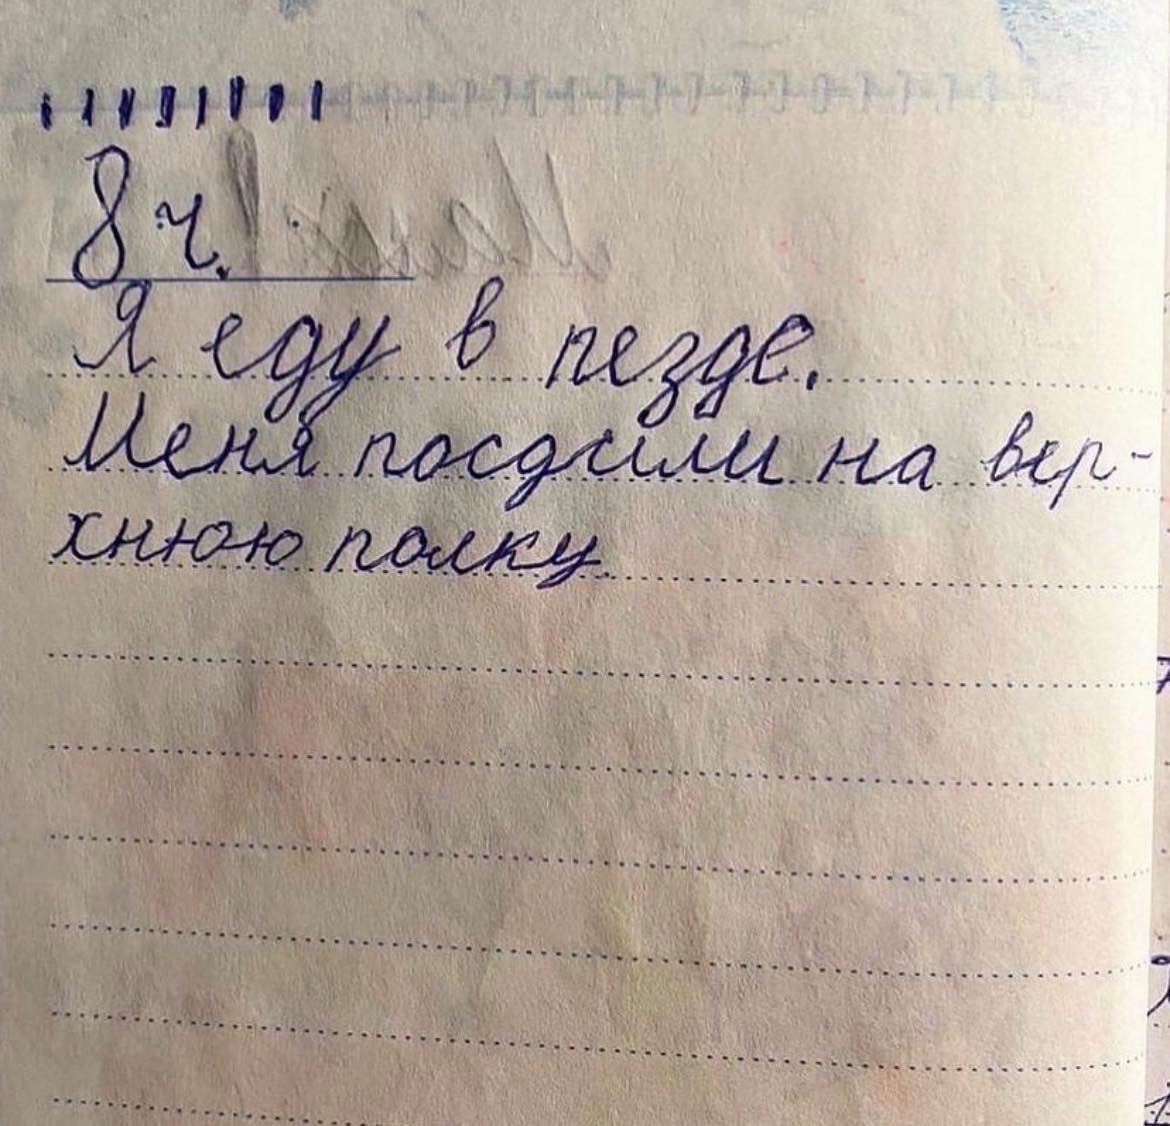 8 ч.
Я еду в пезде.
Меня посдили на вер-
хнюю полку.